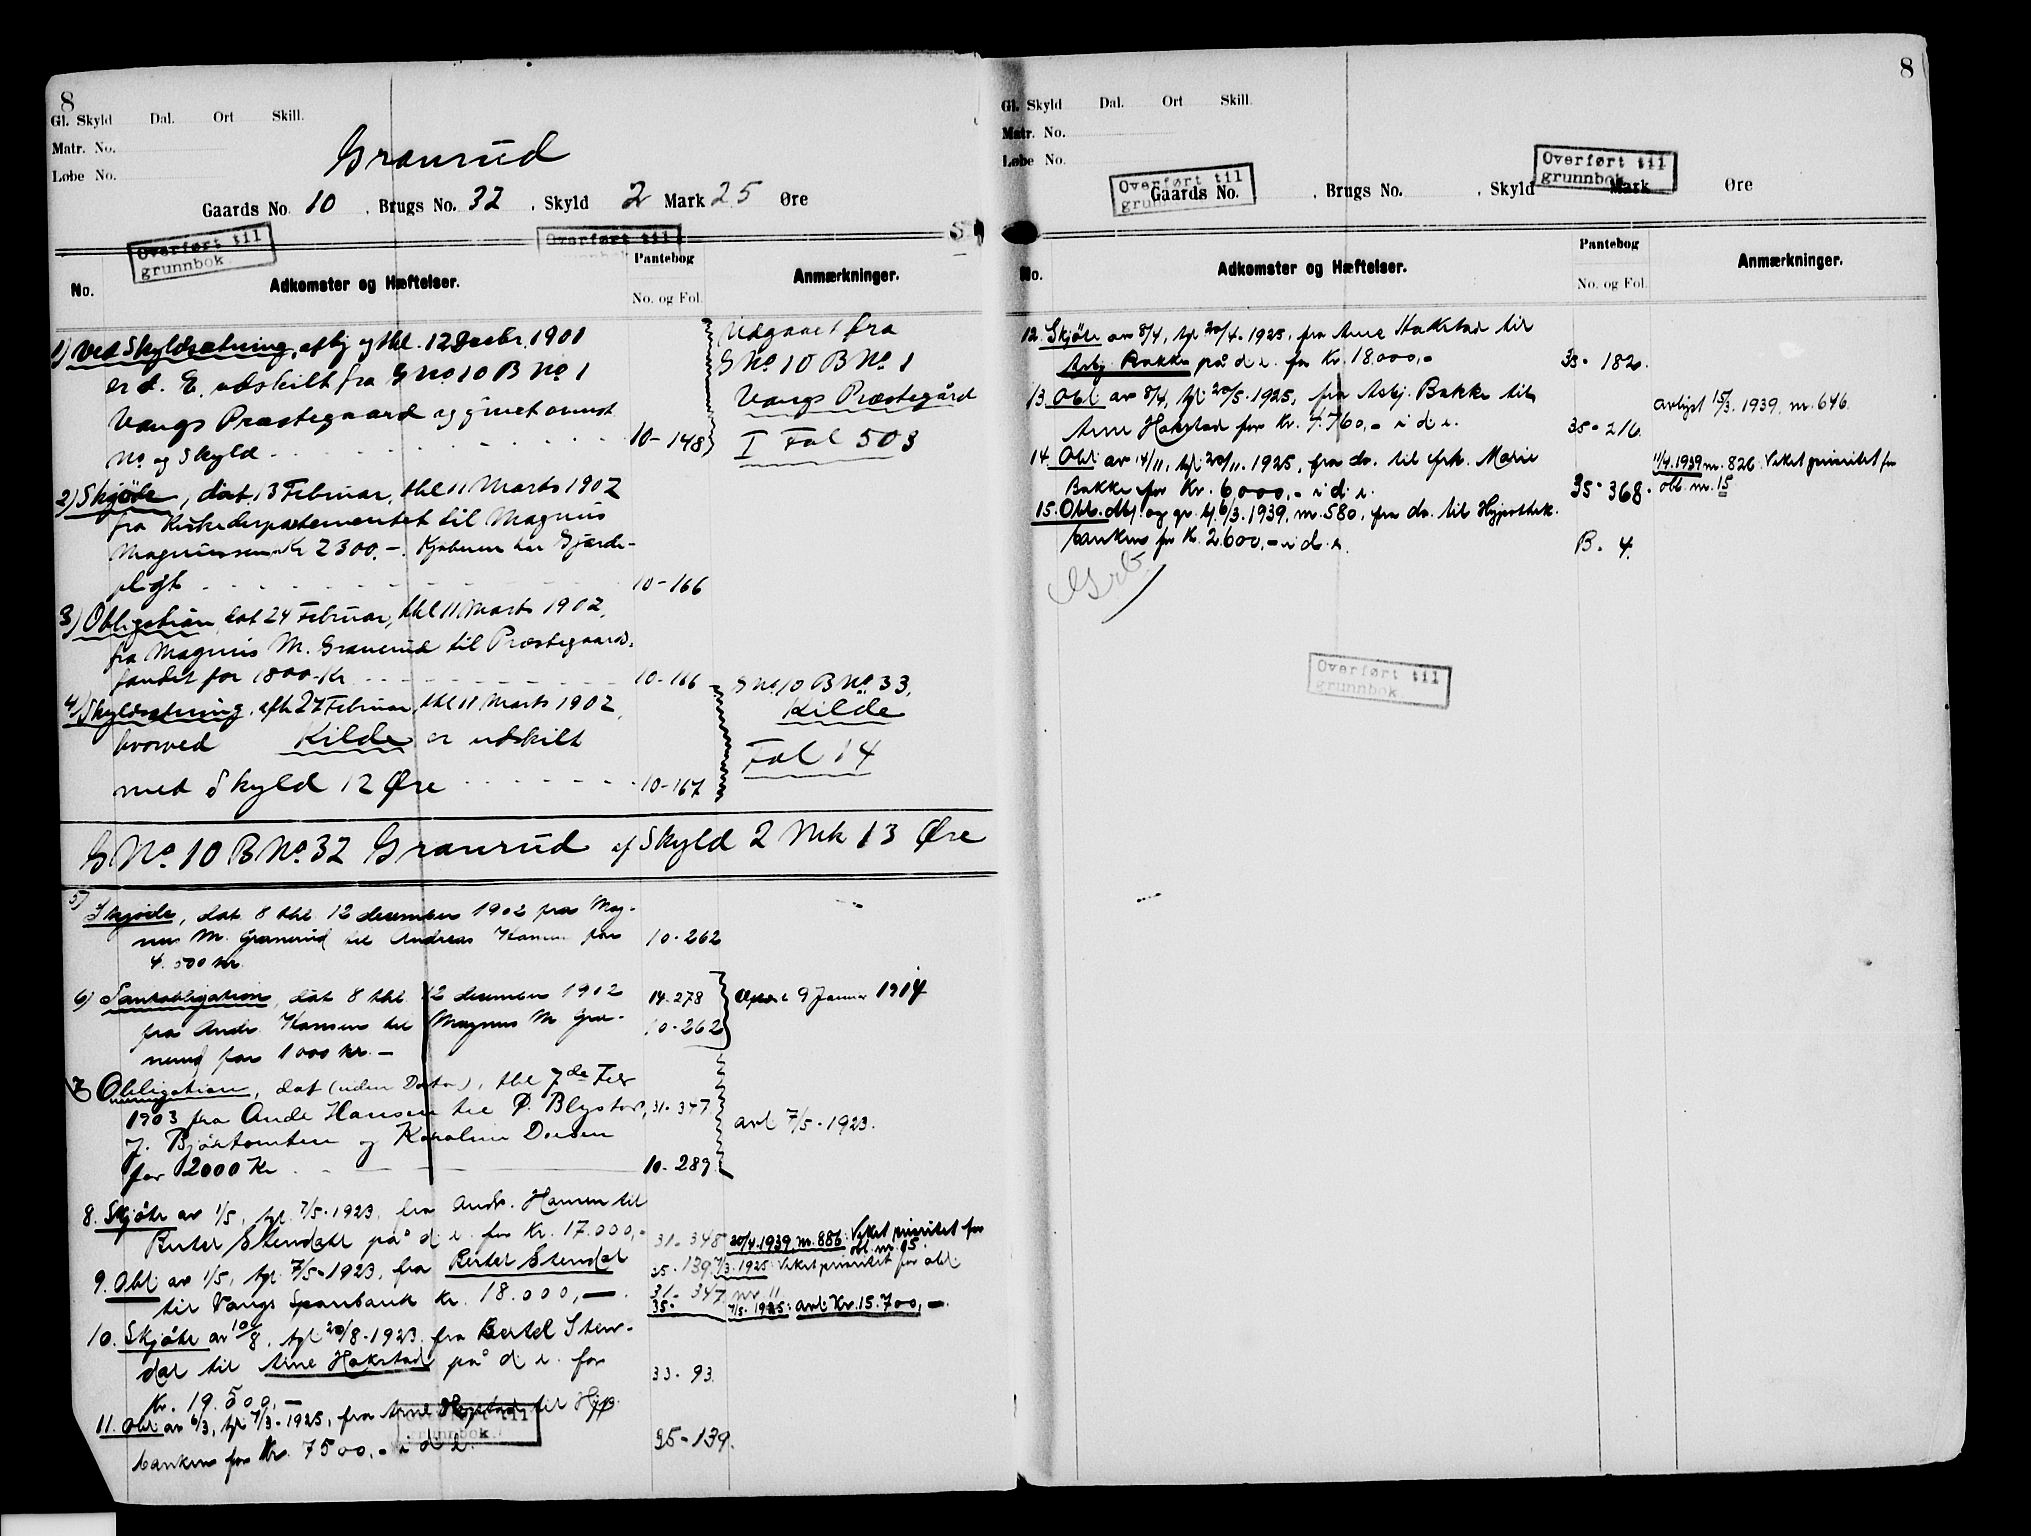 8
Gl. Skyld Dal. Ort Skill.
Matr. No.
Løbe No.
Granrud
Gaards No. 10 , Brugs No. 32 , Skyld 2 Mark 25 Øre
Overført til
grunnbok.
Overført til
No. Adkomster og Hæftelser. Pantebog Anmærkninger.
No. og Fol.
1) Ved Skyldsætning, afhj og thl. 12 Decbr. 1901
er d. E. udskilt fra G No 10 B No 1
Vangs Præstegaard og givet ovenst
No og Skyld 10-148
Udgaaet fra
G No 10 B No 1
Vangs Præstegård
I Fol 503
2) Skjøde, dat. 13 Februar, thl 11 Marts 1902
fra Kirkedepartementet til Magnus
Magnussen Kr 2300.-. Kjøberen har Gjærde-
pligt 10-166
3) Obligation, dat 24 Februar, thl 11 Marts 1902,
fra Magnus M. Granerud til Præstegaards-
fondet for 1800 Kr 10-166
4) Skyldsætning, afh 27 Februar, thl 11 Marts 1902,
hvorved Kilde er udskilt
med Skyld 12 Øre 10-167
G No 10 B No 33,
Kilde
Fol 14
G No 10 B No 32 Granrud af Skyld 2 Mk 13 Øre
5) Skjøde, dat. 8 thl. 12 december 1902 fra Mag-
nus M. Granerud til Andreas Hansen for 10-262
4.500 kr.
6) Panteobligation, dat 8 thl. 12 december 1902 14-278
fra Andr. Hansen til Magnus M Gra- 10-262
nerud for 1000 kr. -
9 Januar 1914
7) Obligation, dat (uden Dato), thl 7de Febr
1903 fra Andr Hansen til P. Blystad, 31-347
J. Bjørtomten og Karoline
for 2000 Kr 10-289
avl 7/5-1923.
8. Skjøte av 1/5, tgl. 7/5-1923, fra Andr. Hansen til
Bertel Stendal på d. e. for Kr. 17.000,- 31-348
9. Obl. av 1/5, tgl. 7/5-1923, fra Bertel Stendal 35-139
til Vangs Sparebank Kr. 18.000,- 31-347
35-
20/4.1939, nr. 886: Veket prioritet for
obl. nr. 15.
7/3.1925: Veket prioritet for obl.
nr. 11
7/5.1925: avl. Kr. 15.700,-.
10. Skjøte av 10/8, tgl. 20/8-1923, fra Bertel Sten-
dal til Arne Hakstad på d. e. for 33-93
Kr. 19.500,-
11. Obl av 6/3, tgl. 7/3-1925, fra Arne Hakstad til Hyp.
banken for Kr. 7500,- i d. e. 35-139.
Overført til
grunnbok.
8
Gl. Skyld Dal. Ort Skill.
Matr. No.
Løbe No.
Overført til
grunnbok.
Overført til
grunnbok.
Gaards No. , Brugs No. , Skyld Mark Øre
No. Adkomster og Hæftelser. Pantebog Anmærkninger.
No. og Fol.
12. Skjøte av 8/4, tgl. 20/4-1925, fra Arne Hakstad til
Asbj. Bakke på d. e. for Kr. 18.000,- 35-182.
13. Obl. av 8/4, tgl. 20/5-1925, fra Asbj. Bakke til
Arne Hakstad for Kr. 4.760,- i d. e. 35-216.
avlyst 15/3.1939, nr. 646.
14. Obl. av 14/11, tgl. 20/11.1925, fra do. til frk. Marie
Bakke for Kr. 6.000,- i d. e. 35-368.
11/4.1939 nr. 826: Veket prioritet for
obl. nr. 15
15. Obl. dbf og gr. tgl. 6/3.1939, nr. 580, fra do. til Hypothek-
banken for Kr. 2.600,- i d. e. B. 4.
Overført til
grunnbok.